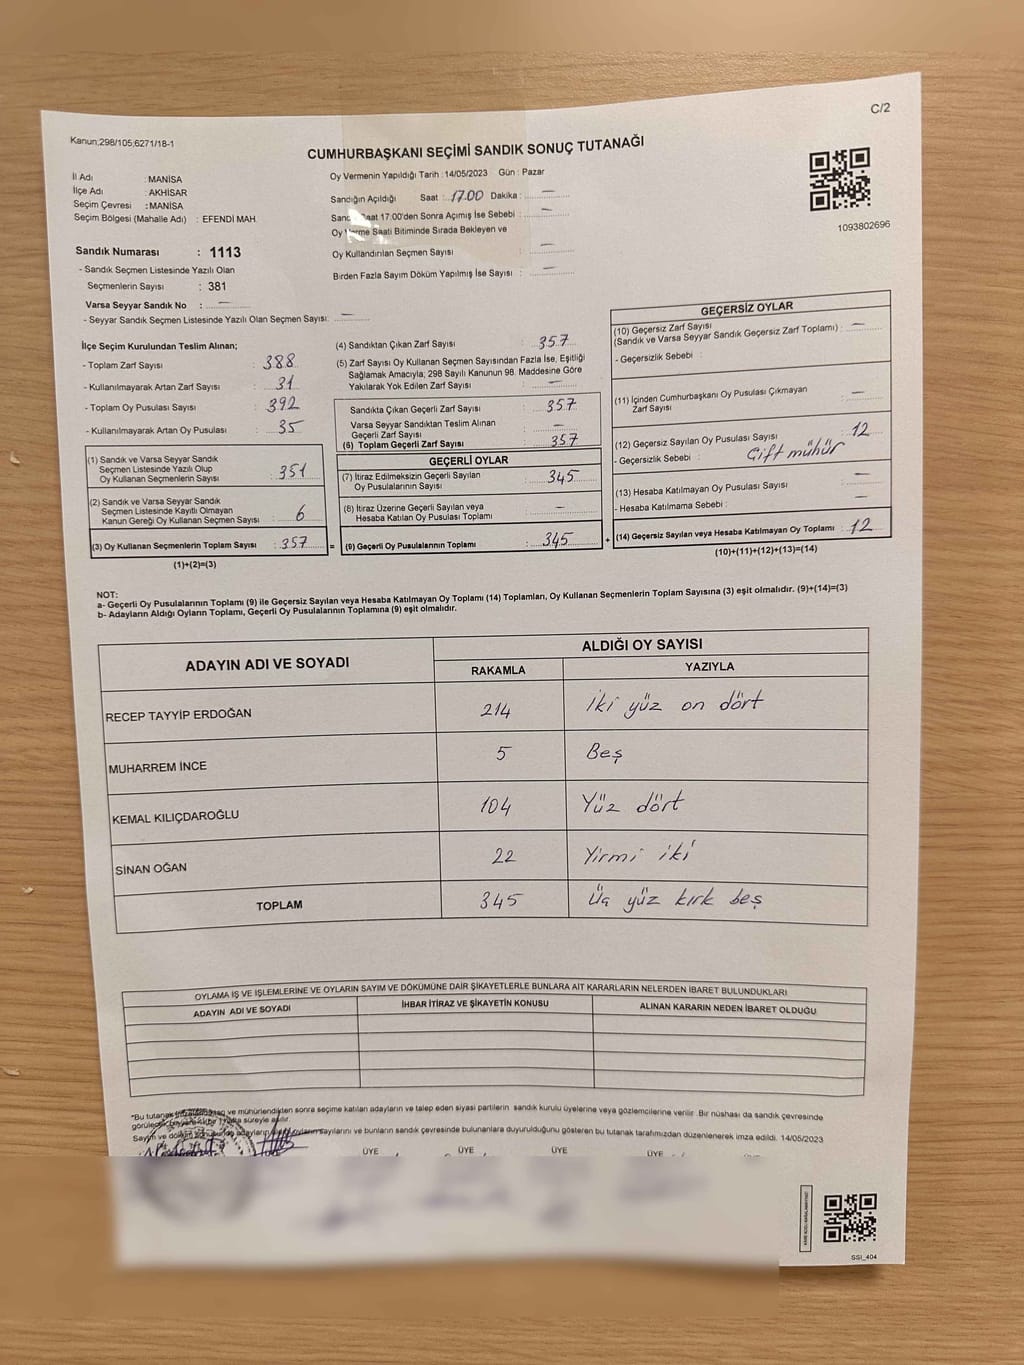 C/2
Kanun;298/105;6271/18-1
CUMHURBAŞKANI SEÇİMİ SANDIK SONUÇ TUTANAĞI
İl Adı : MANİSA
İlçe Adı : AKHİSAR
Seçim Çevresi : MANİSA
Seçim Bölgesi (Mahalle Adı) : EFENDİ MAH.
Sandık Numarası : 1113
- Sandık Seçmen Listesinde Yazılı Olan
Seçmenlerin Sayısı : 381
Varsa Seyyar Sandık No : —
- Seyyar Sandık Seçmen Listesinde Yazılı Olan Seçmen Sayısı: —
Oy Vermenin Yapıldığı Tarih : 14/05/2023 Gün : Pazar
Sandığın Açıldığı Saat : 17.00 Dakika : —
Saat 17.00'den Sonra Açımış İse Sebebi : —
Oy Saati Bitiminde Sırada Bekleyen ve
Oy Kullandırılan Seçmen Sayısı : —
Birden Fazla Sayım Döküm Yapılmış İse Sayısı : —
1093802696
İlçe Seçim Kurulundan Teslim Alınan;
- Toplam Zarf Sayısı : 388
- Kullanılmayarak Artan Zarf Sayısı : 31
- Toplam Oy Pusulası Sayısı : 392
- Kullanılmayarak Artan Oy Pusulası : 35
(1) Sandık ve Varsa Seyyar Sandık
Seçmen Listesinde Yazılı Olup
Oy Kullanan Seçmenlerin Sayısı : 351
(2) Sandık ve Varsa Seyyar Sandık
Seçmen Listesinde Kayıtlı Olmayan
Kanun Gereği Oy Kullanan Seçmen Sayısı : 6
(3) Oy Kullanan Seçmenlerin Toplam Sayısı : 357
(1)+(2)=(3)
(4) Sandıktan Çıkan Zarf Sayısı : 357
(5) Zarf Sayısı Oy Kullanan Seçmen Sayısından Fazla İse, Eşitliği
Sağlamak Amacıyla; 298 Sayılı Kanunun 98. Maddesine Göre
Yakılarak Yok Edilen Zarf Sayısı : —
Sandıkta Çıkan Geçerli Zarf Sayısı : 357
Varsa Seyyar Sandıktan Teslim Alınan
Geçerli Zarf Sayısı : —
(6) Toplam Geçerli Zarf Sayısı : 357
GEÇERLİ OYLAR
(7) İtiraz Edilmeksizin Geçerli Sayılan
Oy Pusulalarının Sayısı : 345
(8) İtiraz Üzerine Geçerli Sayılan veya
Hesaba Katılan Oy Pusulası Toplamı : —
= (9) Geçerli Oy Pusulalarının Toplamı : 345
GEÇERSİZ OYLAR
(10) Geçersiz Zarf Sayısı
(Sandık ve Varsa Seyyar Sandık Geçersiz Zarf Toplamı) : —
- Geçersizlik Sebebi :
(11) İçinden Cumhurbaşkanı Oy Pusulası Çıkmayan
Zarf Sayısı : —
(12) Geçersiz Sayılan Oy Pusulası Sayısı : 12
- Geçersizlik Sebebi : Çift mühür
(13) Hesaba Katılmayan Oy Pusulası Sayısı : —
- Hesaba Katılmama Sebebi : —
+ (14) Geçersiz Sayılan veya Hesaba Katılmayan Oy Toplamı : 12
(10)+(11)+(12)+(13)=(14)
NOT:
a- Geçerli Oy Pusulalarının Toplamı (9) ile Geçersiz Sayılan veya Hesaba Katılmayan Oy Toplamı (14) Toplamları, Oy Kullanan Seçmenlerin Toplam Sayısına (3) eşit olmalıdır. (9)+(14)=(3)
b- Adayların Aldığı Oyların Toplamı, Geçerli Oy Pusulalarının Toplamına (9) eşit olmalıdır.
ADAYIN ADI VE SOYADI
ALDIĞI OY SAYISI
RAKAMLA YAZIYLA
RECEP TAYYİP ERDOĞAN 214 İki yüz on dört
MUHARREM İNCE 5 Beş
KEMAL KILIÇDAROĞLU 104 Yüz dört
SİNAN OĞAN 22 Yirmi iki
TOPLAM 345 Üç yüz kırk beş
OYLAMA İŞ VE İŞLEMLERİNE VE OYLARIN SAYIM VE DÖKÜMÜNE DAİR ŞİKAYETLERLE BUNLARA AİT KARARLARIN NELERDEN İBARET BULUNDUKLARI
ADAYIN ADI VE SOYADI İHBAR İTİRAZ VE ŞİKAYETİN KONUSU ALINAN KARARIN NEDEN İBARET OLDUĞU
*Bu tutanak ve mühürlendikten sonra seçime katılan adayların ve talep eden siyasi partilerin sandık kurulu üyelerine veya gözlemcilerine verilir. Bir nüshası da sandık çevresinde
süreyle asılır.
Sayım ve sayılarını ve bunların sandık çevresinde bulunanlara duyurulduğunu gösteren bu tutanak tarafımızdan düzenlenerek imza edildi. 14/05/2023
ÜYE ÜYE ÜYE ÜYE
SSI_404